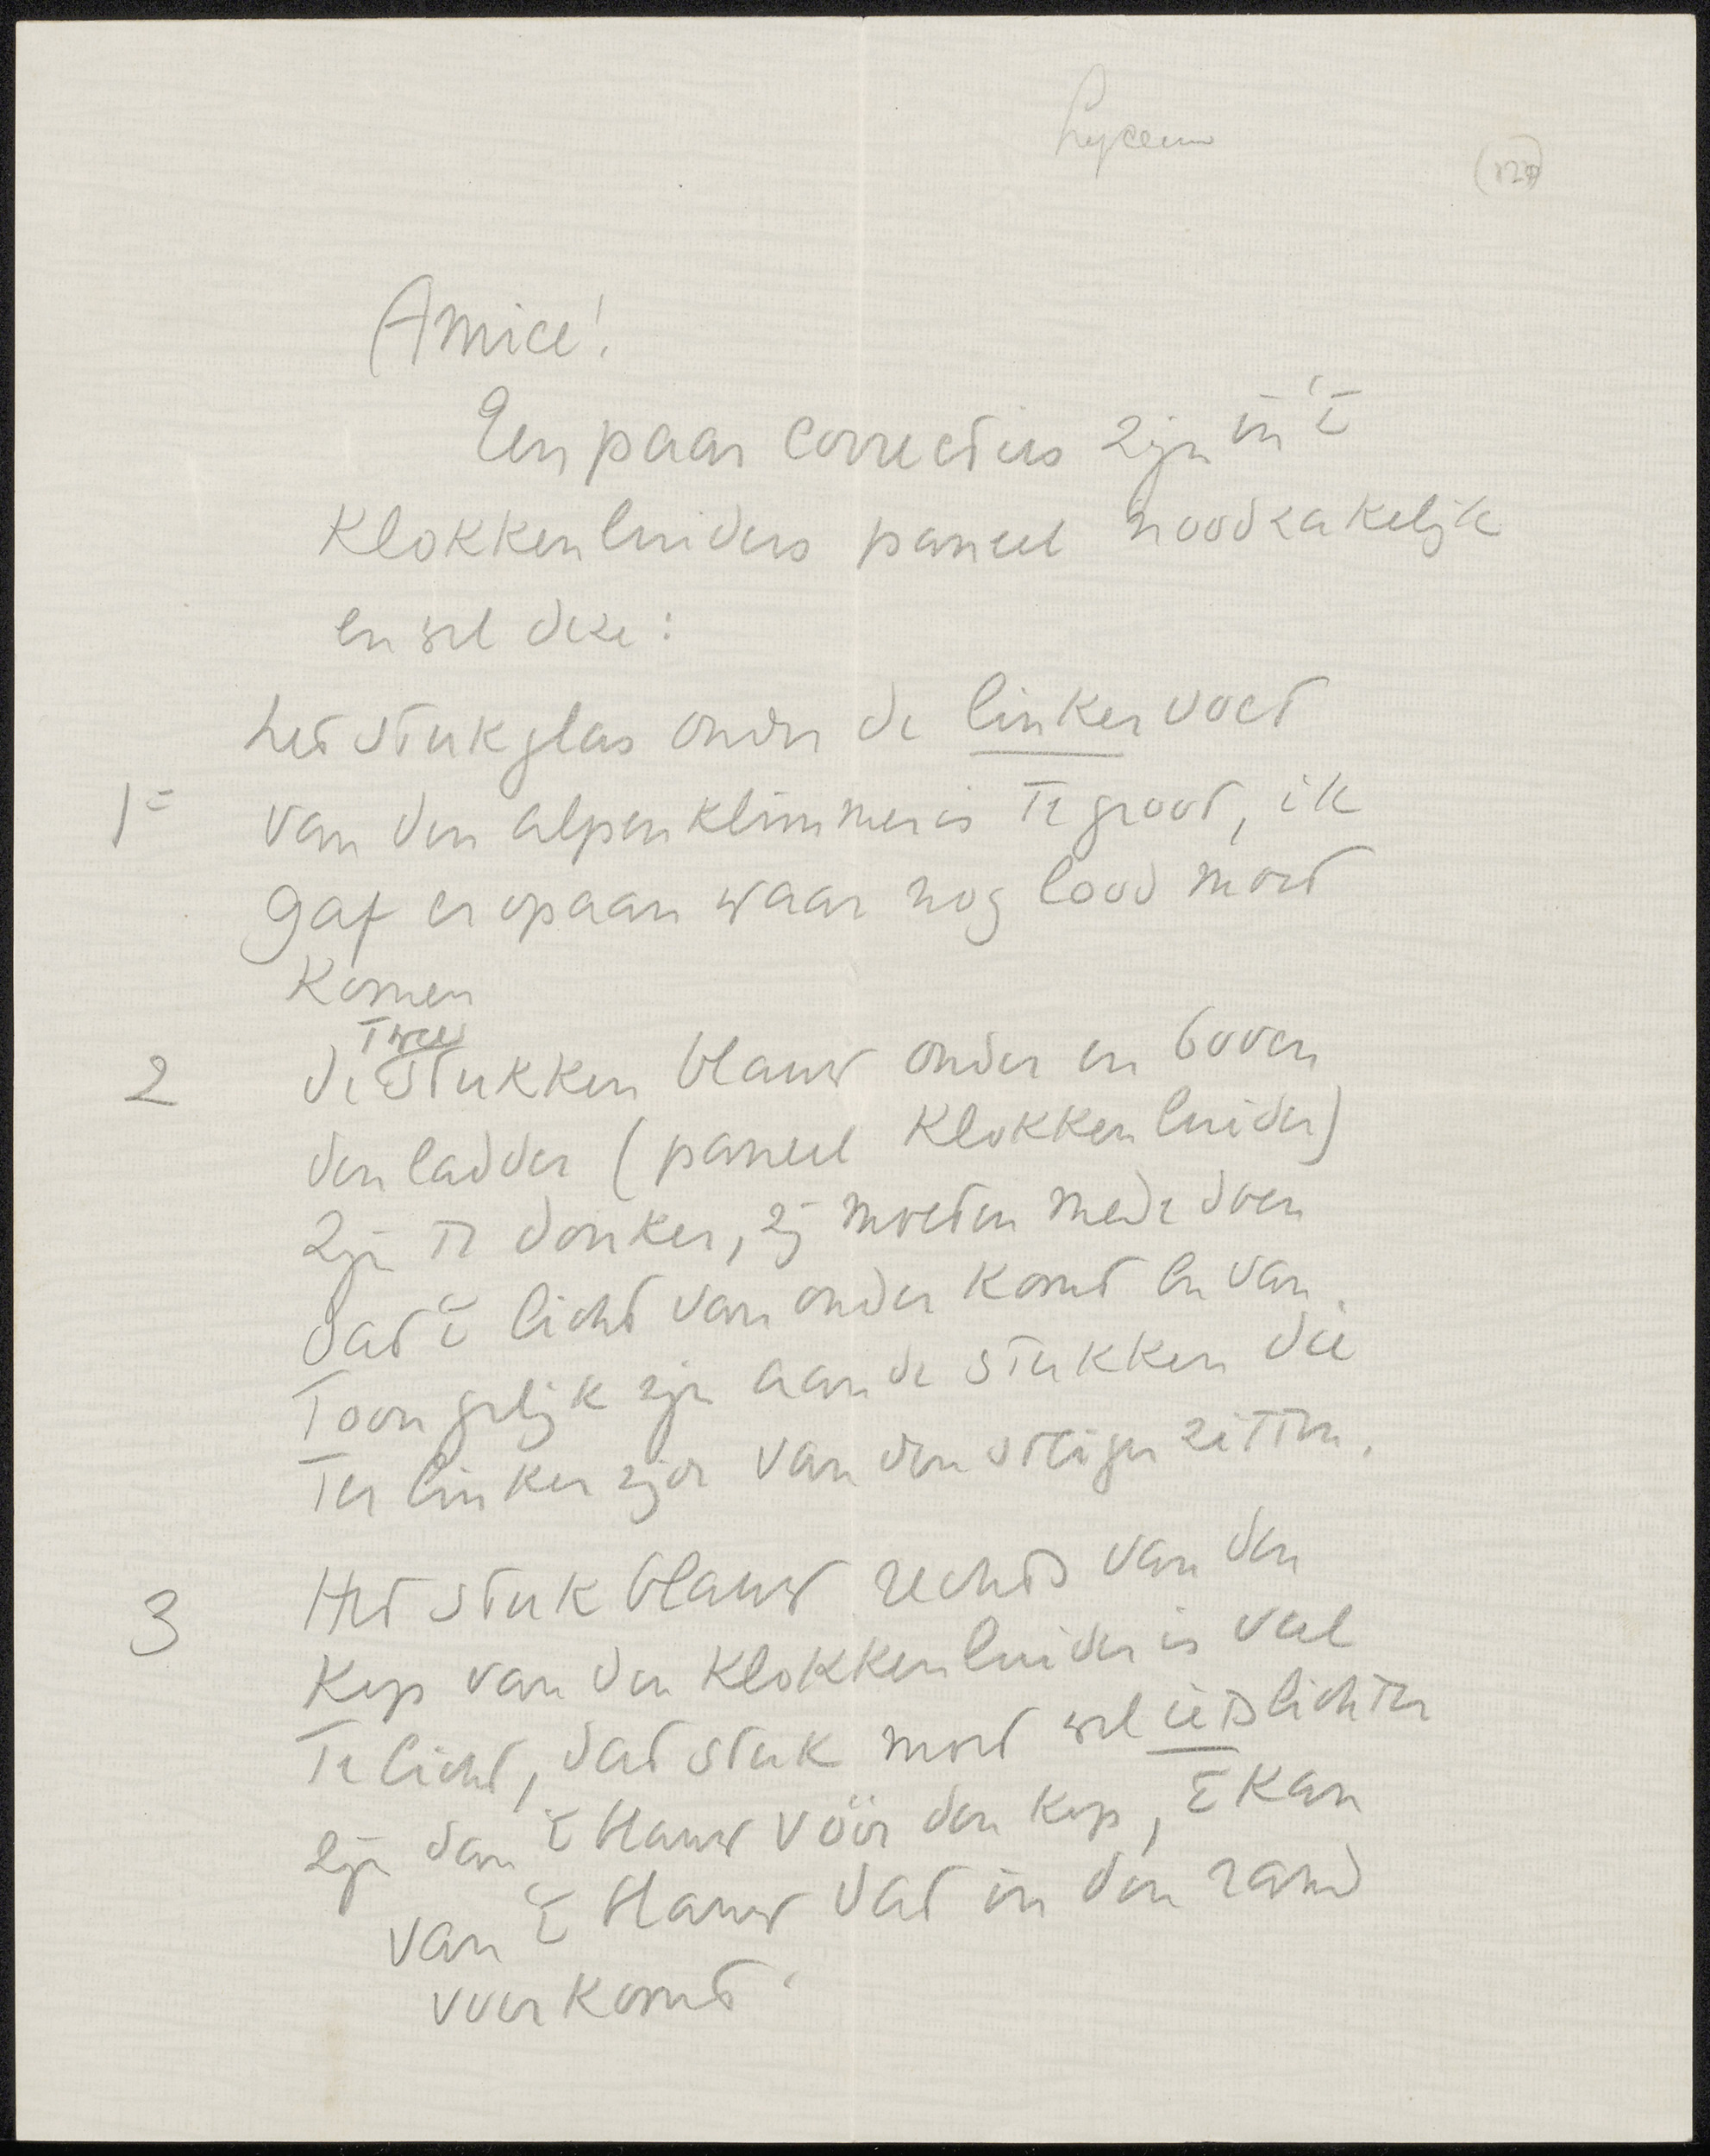 Lyceum
Amice!
Een paar correcties zijn in 't
Klokkenluiders paneel noodzakelijk
en wel deze:
het stuk glas onder de linker voet
1= van den alpenklimmer is te groot, ik
gaf er op aan waar nog lood moet
komen
twee
2 de stukken blauw onder en boven
den ladder (paneel Klokkenluider)
zijn te donker, zij moeten mede doen
dat 't licht van onder komt en van
toon gelijk zijn aan de stukken die
ter linker zijde van den stijger zitten.
3 Het stuk blauw rechts van den
kop van den Klokkenluider is veel
te licht, dat stuk moet wel iets lichter
zijn dan 't blauw vóór den kop, 't kan
van 't blauw dat in den rand
voorkomt.